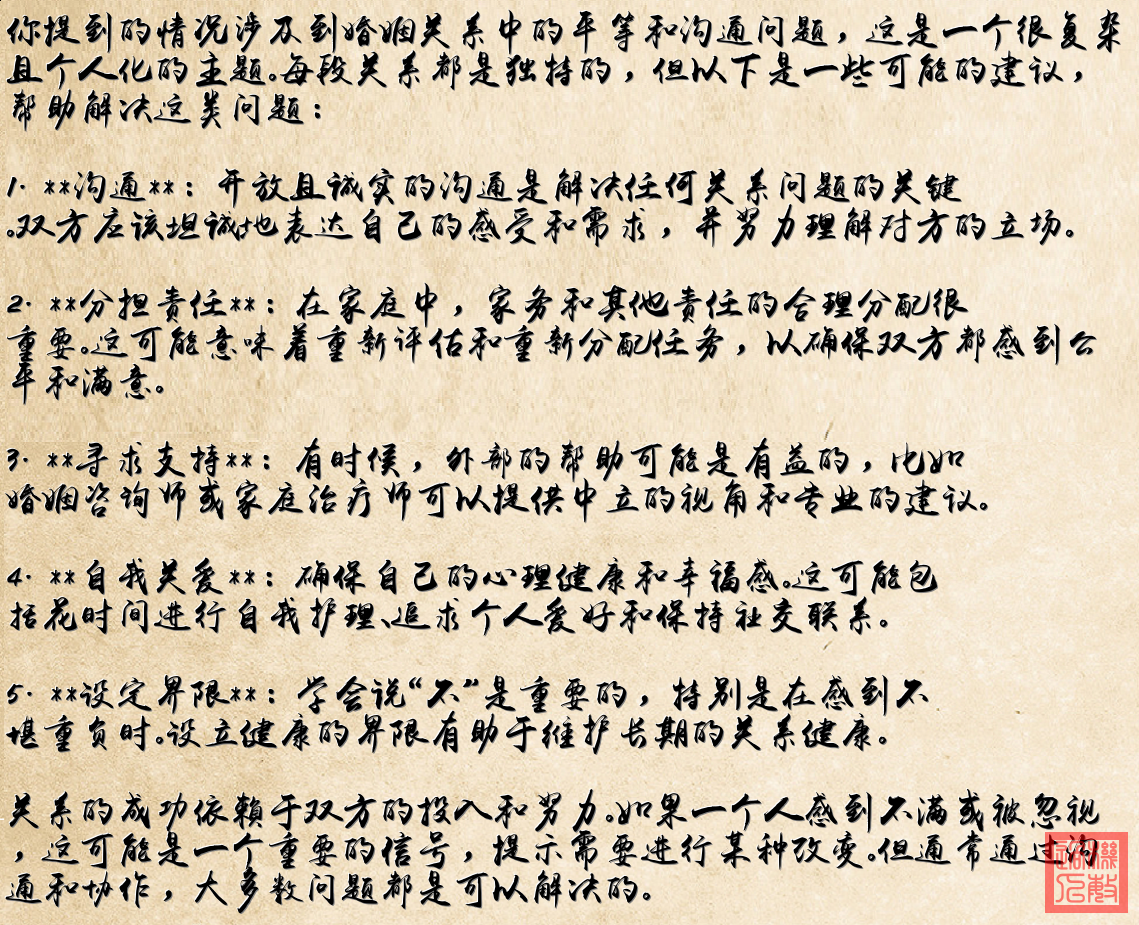 你提到的情况涉及到婚姻关系中的平等和沟通问题，这是一个很复杂
且个人化的主题。每段关系都是独特的，但以下是一些可能的建议，
帮助解决这类问题：
1. **沟通**：开放且诚实的沟通是解决任何关系问题的关键
。双方应该坦诚地表达自己的感受和需求，并努力理解对方的立场。
2. **分担责任**：在家庭中，家务和其他责任的合理分配很
重要。这可能意味着重新评估和重新分配任务，以确保双方都感到公
平和满意。
3. **寻求支持**：有时候，外部的帮助可能是有益的，比如
婚姻咨询师或家庭治疗师可以提供中立的视角和专业的建议。
4. **自我关爱**：确保自己的心理健康和幸福感。这可能包
括花时间进行自我护理、追求个人爱好和保持社交联系。
5. **设定界限**：学会说“不”是重要的，特别是在感到不
堪重负时。设立健康的界限有助于维护长期的关系健康。
关系的成功依赖于双方的投入和努力。如果一个人感到不满或被忽视
，这可能是一个重要的信号，提示需要进行某种改变。但通常通过沟
通和协作，大多数问题都是可以解决的。